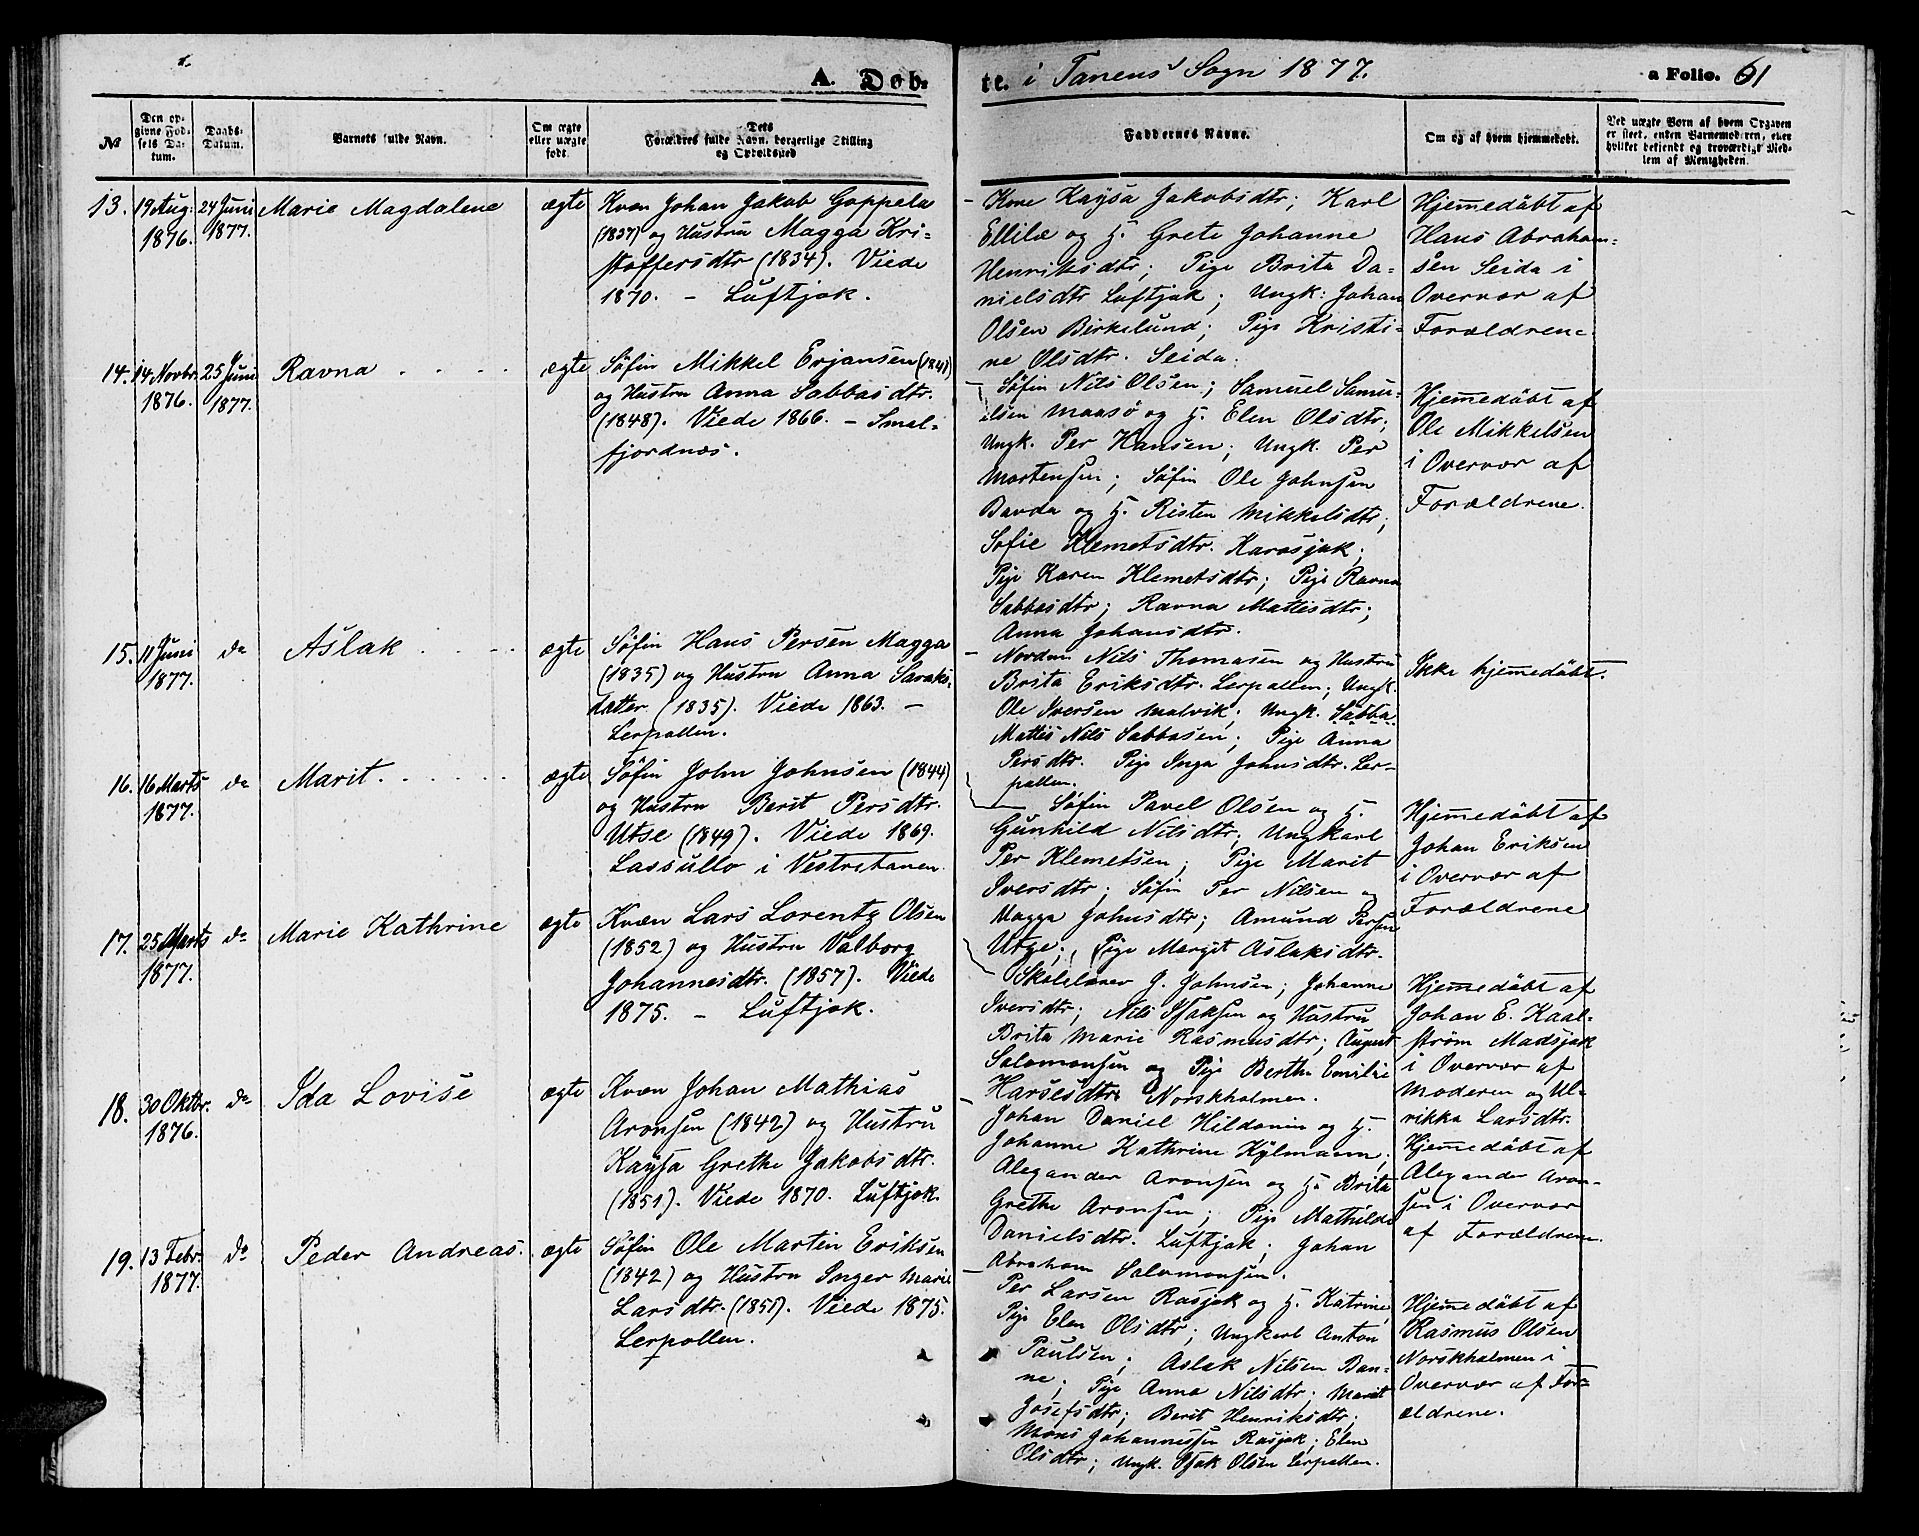 A. Døb-
te. i Tanens Sogn 1877.
a Folio. 61
No
Den op-
givne Fød-
sels Da-
tum.
Daabs-
Datum.
Barnets fulde Navn.
Om ægte
eller uægte
født.
Dets
Forældres fulde Navn, borgerlige Stilling
og Opholdssted
Faddernes Navne.
Om og af hvem hjemmedøbt.
Ved uægte Børn af hvem Opgaven
er skeet, enten Barnemoderen, eller
hvilket bekjendt og troværdigt Med-
lem af Menigheden.
13.
19 Aug:
1876.
24 Juni
1877.
Marie Magdalene
ægte
Kvæn Johan Jakob Gappela
(1837) og Hustru Magga Kri-
stoffersdtr (1834). Viede
1870. - Luftjok.
- Kone Kaysa Jakobsdtr; Karl
Ellilæ og H. Grete Johanne
Henriksdtr; Pige Brita Da-
nielsdtr Luftjok; Ungk: Johan
Olsen Birkelund; Pige Kristi-
ne Olsdtr. Seida.
Hjemedöbt af
Hans Abraham-
sen Seida i
Overvær af
Forældrene
14.
14 Novbr.
1876.
25 Juni
1877.
Ravna
ægte
Søfin Mikkel Erjansen (1841)
og Hustru Anna Sabbasdtr.
(1848). Viede 1866. - Smal-
fjordnæs.
- Søfin Nils Olsen; Samuel Samu-
elsen Maasö og H. Elen Olsdtr;
Ungk. Per Hansen; Ungk. Per
Mortensen; Søfin Ole Johnsen
Bavda og H. Risten Mikkelsdtr;
Sofie Klemetsdtr. Karasjok;
Pige Karen Klemetsdtr; Pige Ravna
Sabbasdtr; Ravna Mattisdtr;
Anna Johansdtr.
Hjemedöbt af
Ole Mikkelsen
i Overvær af
Forældrene.
15.
11 Juni
1877.
do
Aslak
ægte
Søfin Hans Persen Magga
(1835) og Hustru Anna Saraks-
datter (1835). Viede 1863. -
Lerpollen.
- Nordm Nils Thomasen og Hustru
Brita Eriksdtr. Lerpollen; Ungk.
Ole Iversen Malvik; Ungk. Sabba
Mattis Nils Sabbasen; Pige Anna
Persdtr. Pige Inga Johnsdtr. Ler-
pollen.
Ikke hjemedöbt.
16.
16 Marts
1877.
do
Marit.
ægte
Søfin John Johnsen (1844)
og Hustru Berit Persdtr.
Utse (1849). Viede 1869.
Lassullo i Vestretanen.
Søfin Pavel Olsen og H.
Gunhild Nilsdtr; Ungkarl
Per Klemetsen; Pige Marit
Iversdtr; Søfin Per Nilsen og
Magga Johnsdtr; Amund Persen
Utge; Pige Margit Aslaksdtr.
Hjemedöbt af
Johan Eriksen
i Overvær af
Forældrene
17.
25 Marts
1877.
do
Marie Kathrine
ægte
Kvæn Lars Lorentz Olsen
(1852) og Hustru Valborg
Johannesdtr. (1857). Viede
1875. - Luftjok.
Skolelærer J. Johnsen; Johanne
Iversdtr; Nils Isaksen og Hustru
Brita Marie Rasmusdtr; August
Salomonsen og Pige Berthe Emilie
Norskholmen.
Hjemedöbt af
Johan E. Kaal-
strøm Madsjok
i Overvær af
Moderen og Ul-
rikka Larsdtr.
18.
30 Oktbr.
1876.
do
Ida Lovise
ægte
Kvæn Johan Mathias
Aronsen (1842) og Hustru
Kaysa Grethe Jakobsdtr.
(1851). Viede 1870. Luftjok.
- Johan Daniel Hildonin og H.
Johanne Kathrine Kylmann;
Alexander Aronsen og H. Brita
Grethe Aronsen; Pige Mathilde
Danielsdtr. Luftjok; Johan
Abraham Salomonsen.
Hjemedöbt af
Alexander Aron-
sen i Overvær
af Forældrene.
19.
13 Febr.
1877.
do
Peder Andreas.
ægte
Søfin Ole Martin Eriksen
(1842) og Hustru Inger Marie
Larsdtr. (1851). Viede 1875.
Lerpollen.
- Per Larsen Rasjok og H. Katrine;
Pige Elen Olsdtr; Ungkarl Anton
Paulsen; Aslak Nilsen Ban-
ne; Pige Anna Nilsdtr; Marit
Josefsdtr; Berit Henriksdtr;
Mons Johannessen Rasjok; Elen
Olsdtr; Ungk. Isak Olsen Lerpollen.
Hjemedöbt af
Rasmus Olsen
Norskholmen i
Overvær af For-
ældrene.